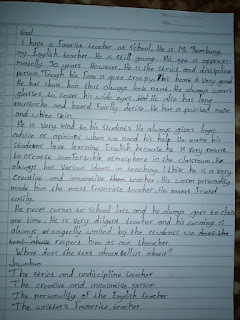 Soal
I have a favorite teacher at school. He is Mr Bambang,
my English teacher. He is still young. His age is approxi-
matelly 30 years. However, He is the strict and discipline
person. Tough his face is quite creepy. He have a very good
He has short hair that always look neat. He always wears
glasses to cover his wide eyes. And He also has long
mustache and beard fairly dense. He has a pointed nose
and white skin.
He is very kind to his students. He always gives logic
advice or opinions when we need his help. He makes his
students love learning English because he is very smart
to create comfortable atmosphere in the classroom. He
always has various ideas in teaching. I think he is a very
creative and innovative them teacher. His warm personality
made him the most favorite teacher. He makes friend
easily.
He never comes to school late and he always goes to class
on time. He is very diligent teacher and his coming is
always eagerly waited by the students we does the
respect him as our theacher.
What does the text about tell us about?
Jawaban
The strict and undiscipline teacher
The creative and innovative person
The personality of the English teacher
The writter's favorrise teacher.